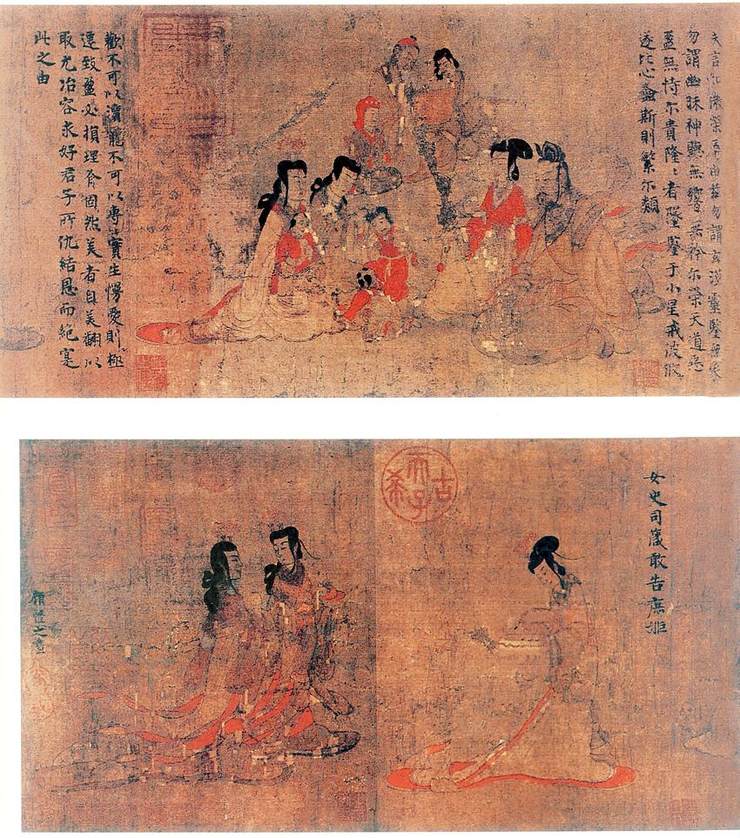 夫言如微榮辱由茲勿謂玄漠靈鑒無象
勿謂幽昧神聽無響無矜尔榮天道惡
盈無恃尔貴隆〻者墜鑒于小星戒彼攸
遂比心螽斯則繁尔類
歡不可以瀆寵不可以專〻實生慢愛則極
遷致盈必損理有固然美者自美翩以
取尤冶容求好君子所仇結恩而絕寔
此之由
女史司箴敢告庶姬
古希天子
顧愷之畫